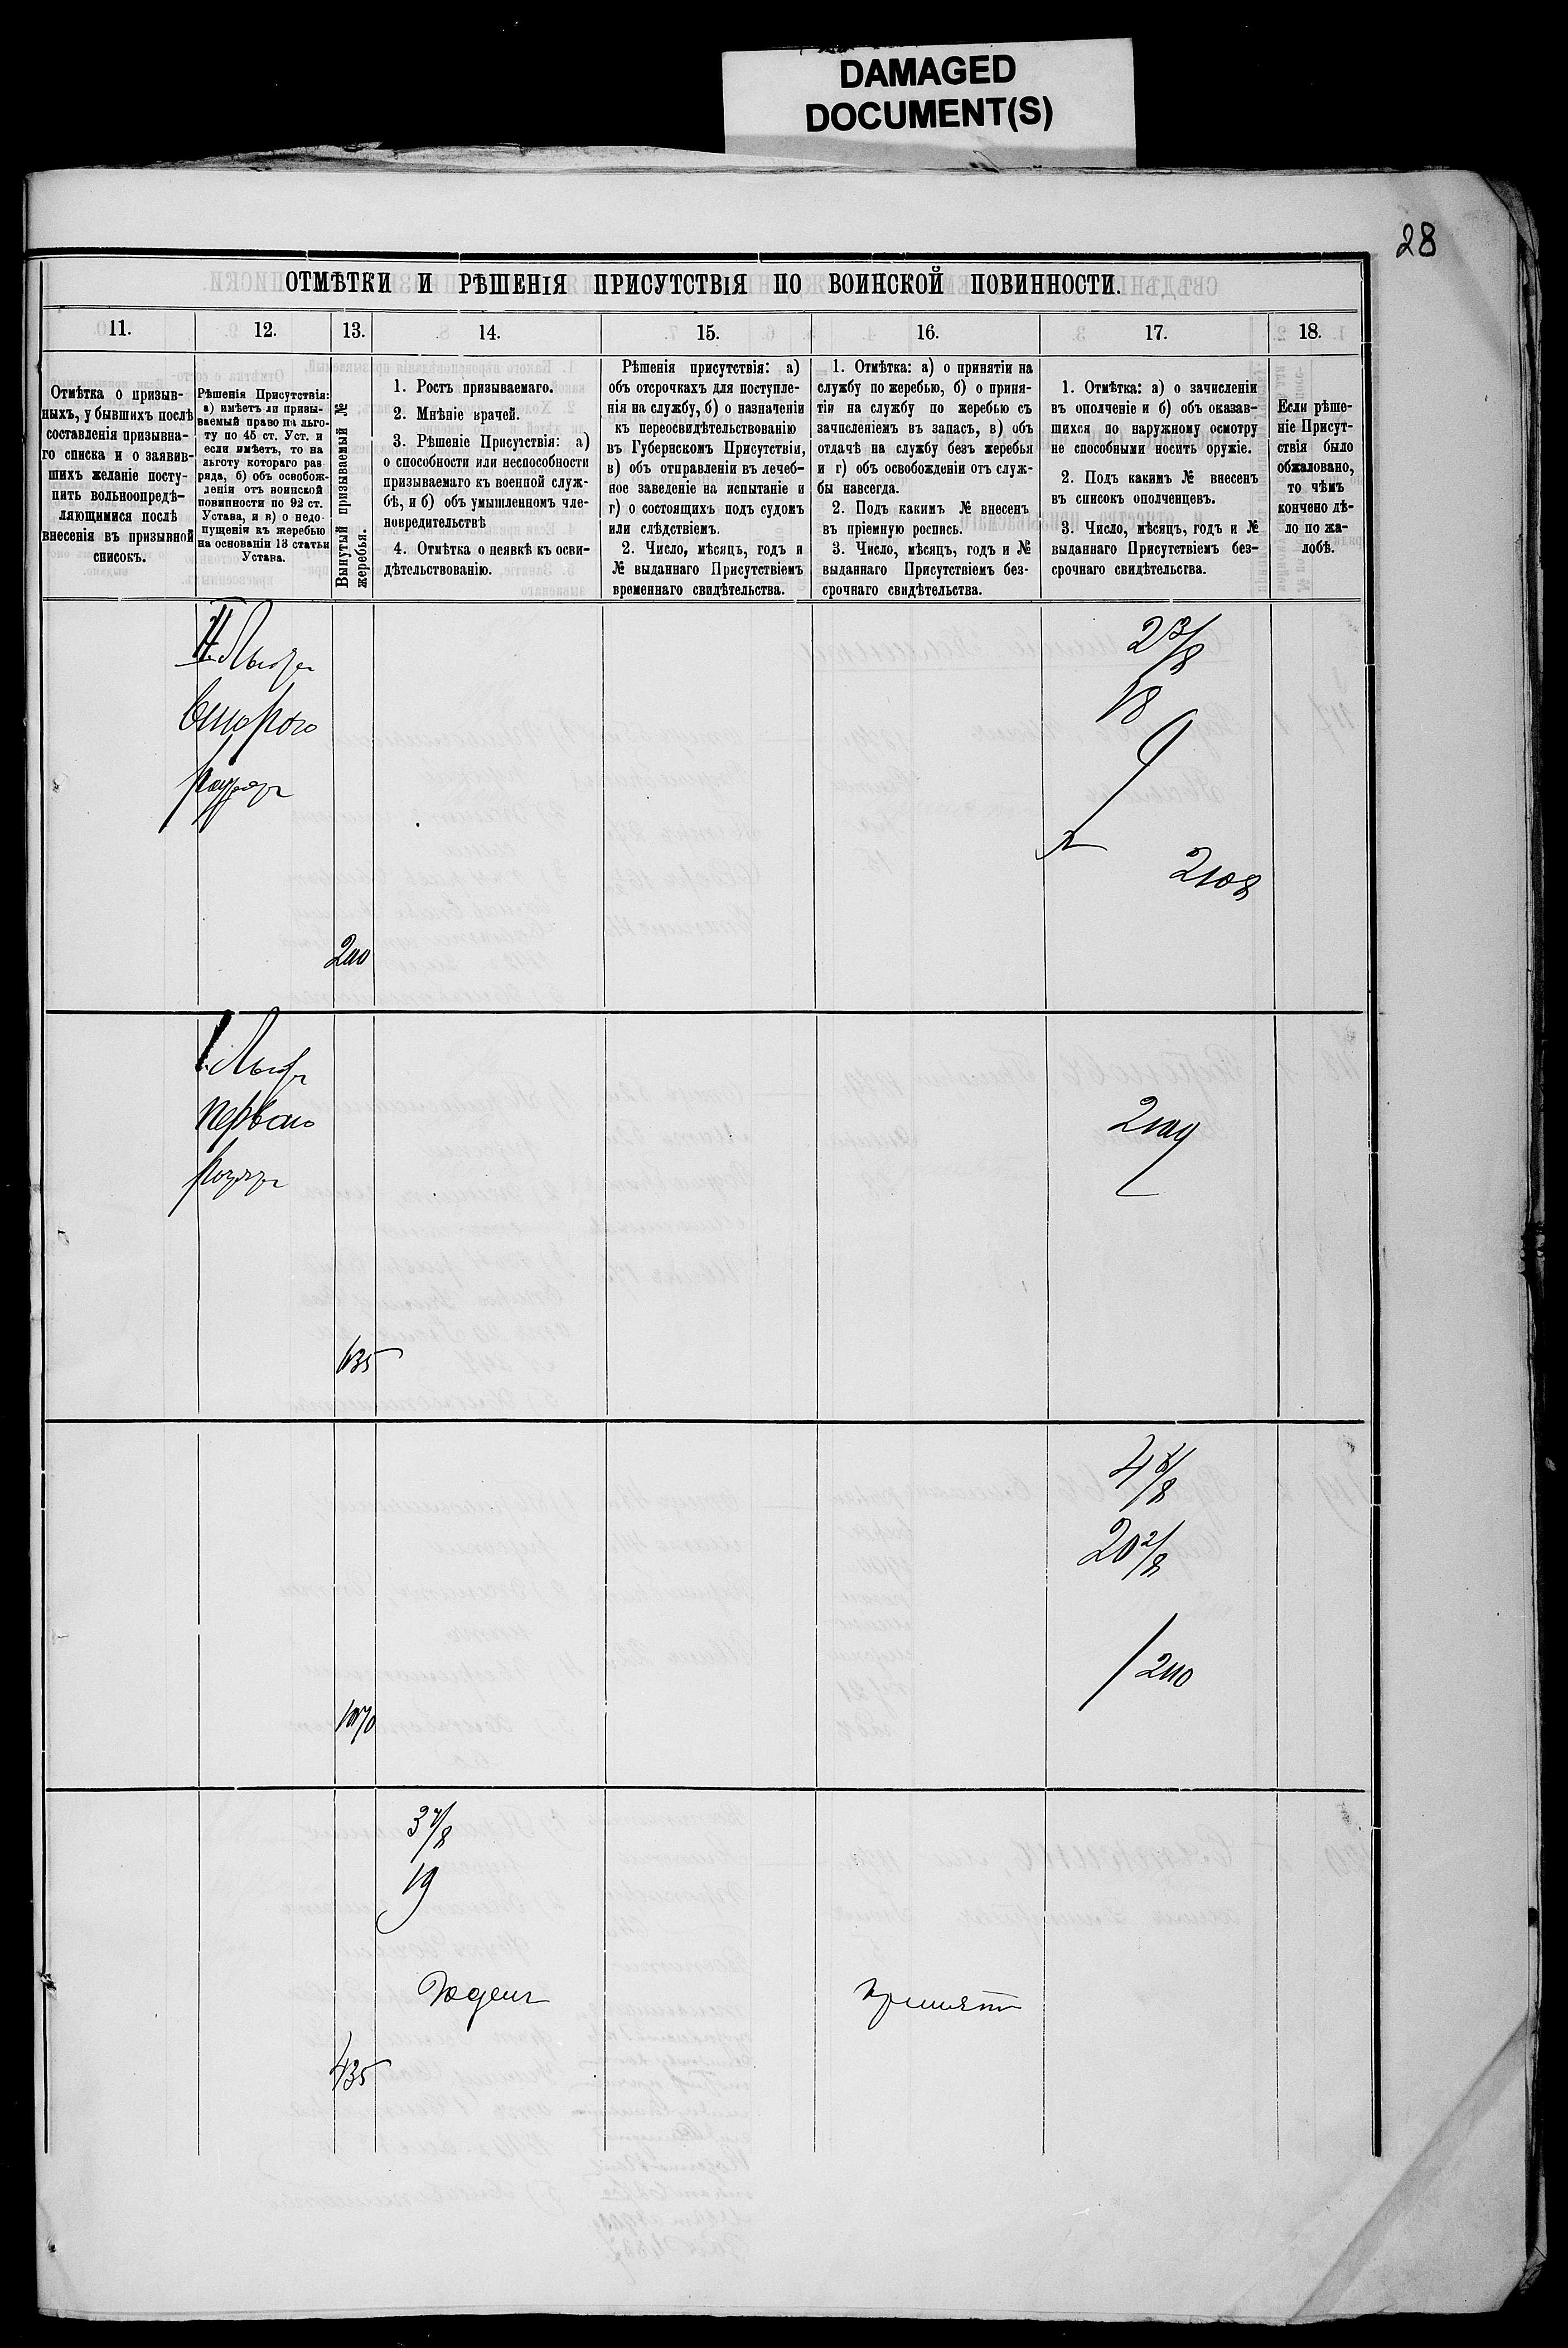 DAMAGED
DOCUMENT(S)
28
ОТМѢТКИ И РѢШЕНІЯ ПРИСУТСТВІЯ ПО ВОИНСКОЙ ПОВИННОСТИ.
11.
12.
13.
14.
15.
16.
17.
18.
Отмѣтка о призыв-
ныхъ, у бывшихъ послѣ
составленія призывна-
го списка и о заявив-
шихъ желаніе посту-
пить вольноопредѣ-
ляющимися послѣ
внесенія въ призывной
список.
Рѣшенія Присутствія:
а) имѣетъ ли призы-
ваемый право на льго-
ту по 45 ст. Уст. и
если имѣетъ, то на
льготу котораго раз
ряда, б) объ освобож-
деніи отъ воинской
повинности по 92 ст.
Устава, и в) о недо-
пущенія къ жеребью
на основаніи 13 статьи
Устава.
Вынутый призываемый №
жеребья.
1. Ростъ призываемаго.
2. Мнѣніе врачей.
3. Рѣшеніе Присутствія: а)
о способности или неспособности
призываемаго къ военной служ-
бѣ, и б) объ умышленномъ чле-
новредительствѣ
4. Отмѣтка о неявкѣ къ осви-
дѣтельствованію.
Рѣшенія присутствія: а)
объ отсрочкахъ для поступле-
нія на службу, б) о назначеніи
къ переосвидѣтельствованію
въ Губернскомъ Присутствіи,
в) объ отправленіи въ лечеб-
ное заведеніе на испытаніе и
г) о состоящихъ подъ судомъ
или слѣдствіемъ.
2. Число, мѣсяцъ, годъ и
№ выданнаго Присутствіемъ
временнаго свидѣтельства.
1. Отмѣтка: а) о принятіи на
службу по жеребью, б) о приня-
тіи на службу по жеребью съ
зачисленіемъ въ запасъ, в) объ
отдачѣ на службу безъ жеребья
и г) объ освобожденіи отъ служ-
бы навсегда.
2. Подъ какимъ № внесенъ
въ пріемную роспись.
3. Число, мѣсяцъ, годъ и №
выданнаго Присутствіемъ без-
срочнаго свидѣтельства.
1. Отмѣтка: а) о зачисленіи
въ ополченіе и б) объ оказав-
шихся по наружному осмотру
не способными носить оружіе.
2. Подъ какимъ № внесенъ
въ списокъ ополченцевъ.
3. Число, мѣсяцъ, годъ и №
выданнаго Присутствіемъ без-
срочнаго свидѣтельства.
Если рѣше-
ніе Присут-
ствія было
обжаловано,
то чѣмъ
кончено дѣ-
ло по жа-
лобѣ.
II
Второго
разряда
2 3/8
18
2108
200
I
перваго
разряда
2109
635
20 2/8
2110
1070
3 7/8
19
Годенъ
принятъ
435